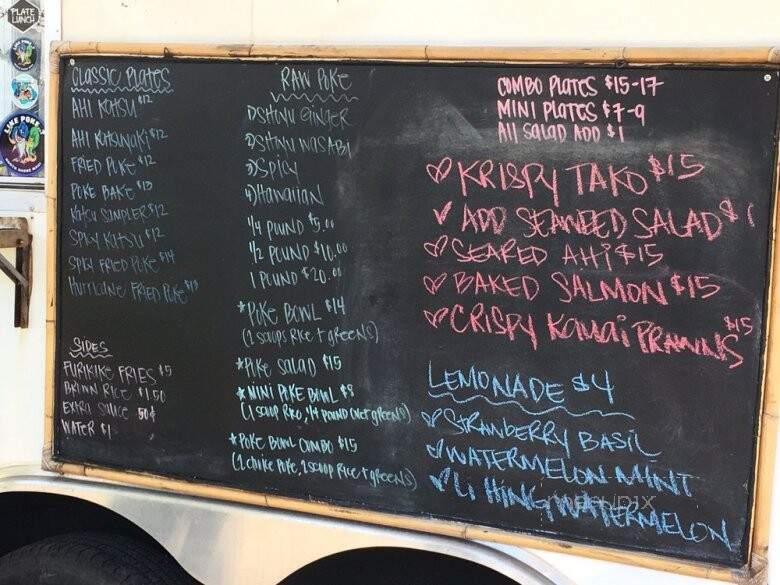 PLATE
LUNCH
LIKE POKE?
CLASSIC PLATES
AHI KATSU $12
AHI KATSUNAKI $12
FRIED POKE $12
POKE BAKE $13
KATSU SAMPLER $12
SPICY KATSU $12
SPICY FRIED POKE $14
HURRICANE FRIED POKE $13
SIDES
FURIKIKE FRIES $5
BROWN RICE $1.50
EXTRA SAUCE 50¢
WATER $1
RAW POKE
1) SHOYU GINGER
2) SHOYU WASABI
3) SPICY
4) HAWAIIAN
1/4 POUND $5.00
1/2 POUND $10.00
1 POUND $20.00
*POKE BOWL $14
(2 SCOOPS RICE + GREENS)
*POKE SALAD $15
*MINI POKE BOWL $8
(1 SCOOP RICE, 1/4 POUND OVER GREENS)
*POKE BOWL COMBO $15
(1 CHOICE POKE, 1 SCOOP RICE + GREENS)
COMBO PLATES $15-17
MINI PLATES $7-9
All SALAD ADD $1
KRISPY TAKO $15
ADD SEAWEED SALAD $1
SEARED AHI $15
BAKED SALMON $15
CRISPY KAUAI PRAWNS $15
LEMONADE $4
STRAWBERRY BASIL
WATERMELON MINT
LI HING WATERMELON
menupix